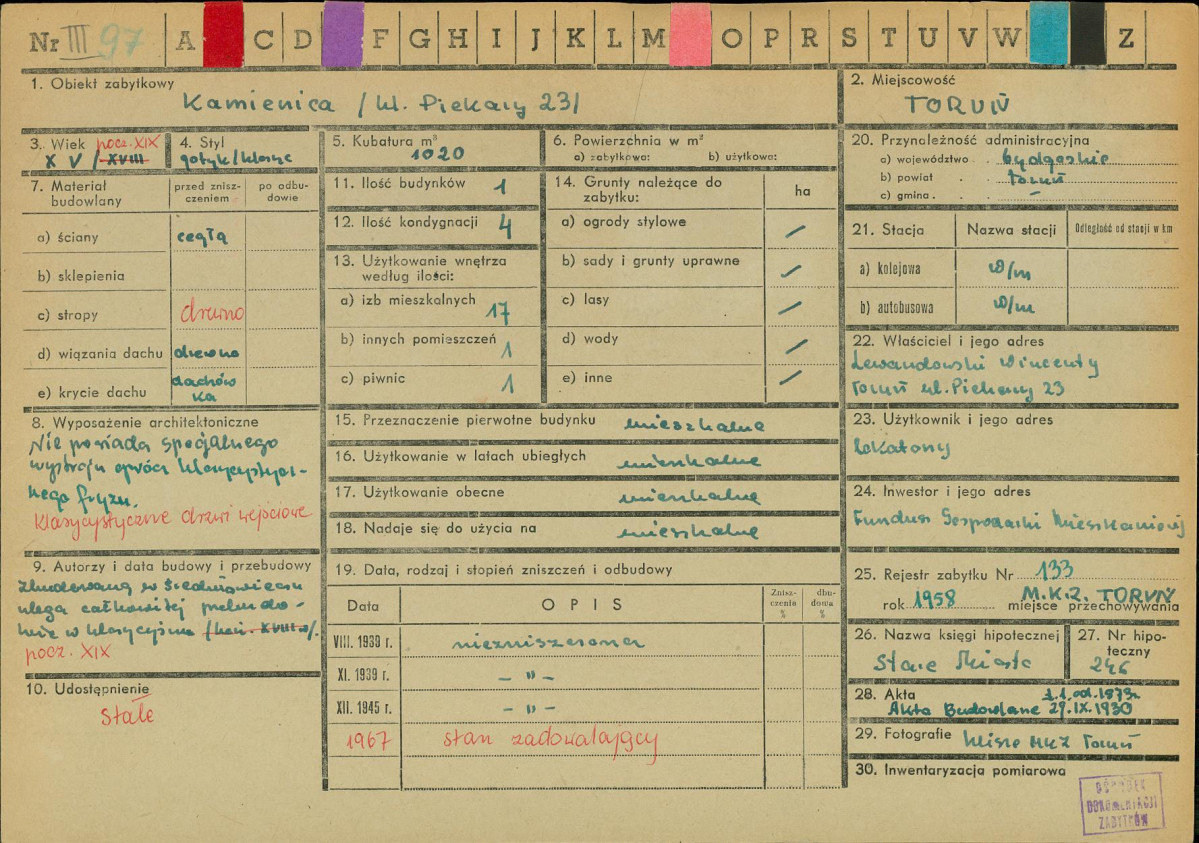 Nr III 97 A C D F G H I J K L M O P R S T U V W Z
1. Obiekt zabytkowy
Kamienica / ul. Piekary 23/
2. Miejscowość
TORUŃ
3. Wiek pocz. XIX
XV/XVIII
4. Styl
gotyk/klasyc
5. Kubatura m³
1020
6. Powierzchnia w m²
a) zabytkowa: b) użytkowa:
20. Przynależność administracyjna
a) województwo . bydgoskie
b) powiat . . Toruń
c) gmina . . . –
7. Materiał budowlany
przed zniszczeniem
po odbudowie
a) ściany cegła
b) sklepienia
c) stropy drewno
d) wiązania dachu drewno
e) krycie dachu dachów
ka
11. Ilość budynków 1
12. Ilość kondygnacji 4
13. Użytkowanie wnętrza
według ilości:
a) izb mieszkalnych 17
b) innych pomieszczeń 1
c) piwnic 1
14. Grunty należące do
zabytku:
ha
a) ogrody stylowe /
b) sady i grunty uprawne /
c) lasy /
d) wody /
e) inne /
21. Stacja Nazwa stacji Odległość od stacji w km
a) kolejowa w/m
b) autobusowa w/m
22. Właściciel i jego adres
Lewandowski Wincenty
Toruń ul. Piekary 23
8. Wyposażenie architektoniczne
Nie posiada specjalnego
wystroju oprócz klasycystycz-
nego fryzu.
Klasycystyczne drzwi wejściowe
15. Przeznaczenie pierwotne budynku mieszkalne
16. Użytkowanie w latach ubiegłych mieszkalne
17. Użytkowanie obecne mieszkalne
18. Nadaje się do użycia na mieszkalne
23. Użytkownik i jego adres
lokatorzy
24. Inwestor i jego adres
Fundusz Gospodarki Mieszkaniowej
9. Autorzy i data budowy i przebudowy
Zbudowana w średniowieczu
ulega całkowitej przebudo-
wie w klasycyzmie /kon. XVIII w/.
pocz. XIX
10. Udostępnienie
stałe
19. Data, rodzaj i stopień zniszczeń i odbudowy
Data OPIS Zniszczenia % dbudowa %
VIII. 1939 r. niezniszczona
XI. 1939 r. – " –
XII. 1945 r. – " –
1967 stan zadowalający
25. Rejestr zabytku Nr 133
rok 1958 M.K.Z. TORUŃ
miejsce przechowywania
26. Nazwa księgi hipotecznej
Stare Miasto
27. Nr hipoteczny
246
28. Akta 1.1. od. 1873r.
Akta Budowlane 29.IX.1930
29. Fotografie klisze MKZ Toruń
30. Inwentaryzacja pomiarowa
OŚRODEK
DOKUMENTACJI
ZABYTKÓW